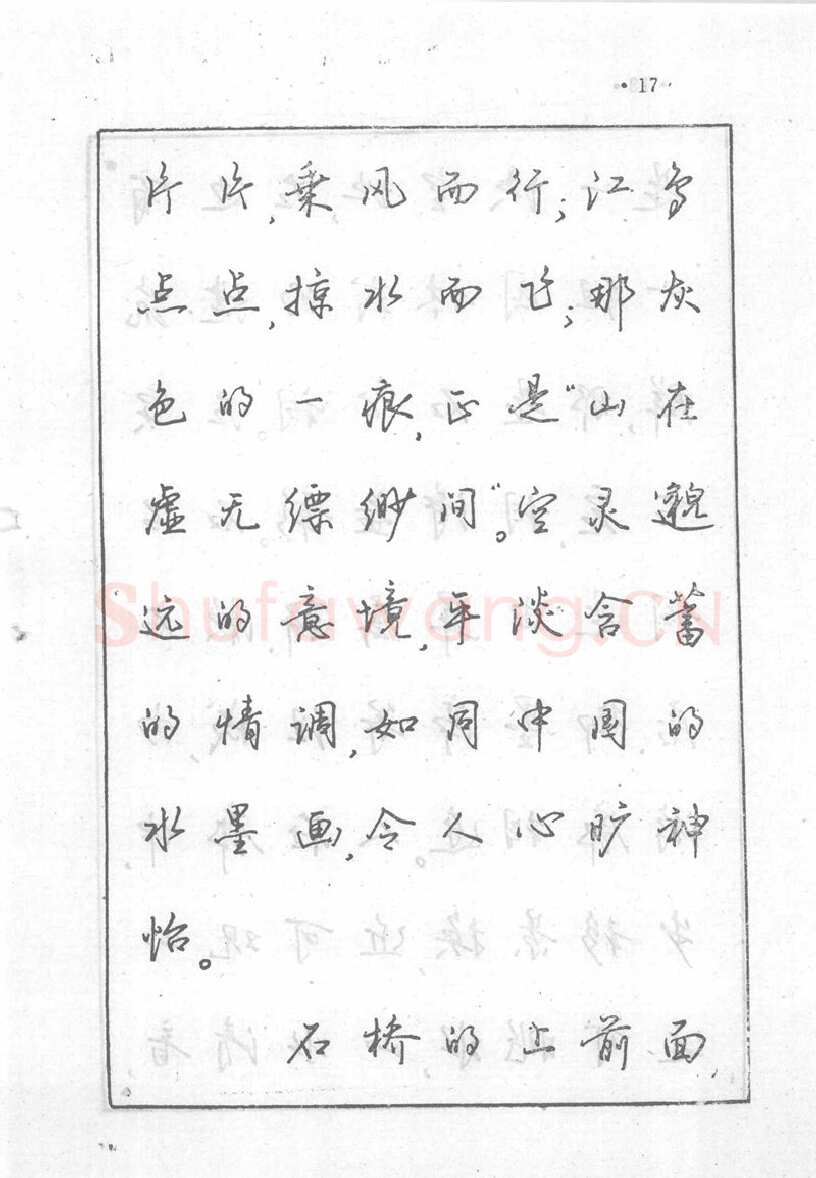 17
片片,乘风而行;江鸟
点点,掠水而飞;那灰
色的一痕,正是“山在
虚无缥缈间”。空灵邈
远的意境,平淡含蓄
的情调,如同中国的
水墨画,令人心旷神
怡。
石桥的上前面,
Shufawang.CN